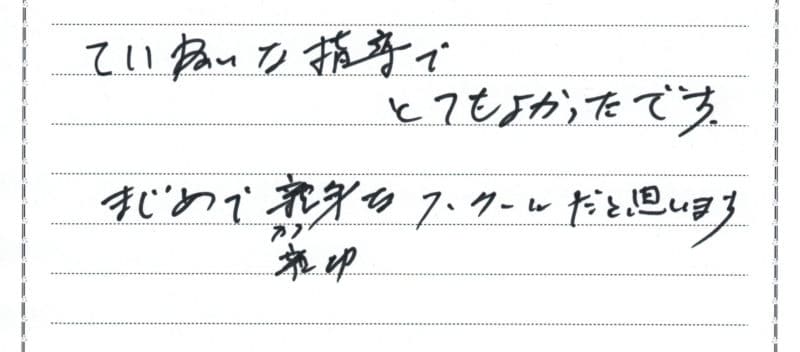 ていねいな指導で
とてもよかったです。
まじめで 親身な スクールだと思います